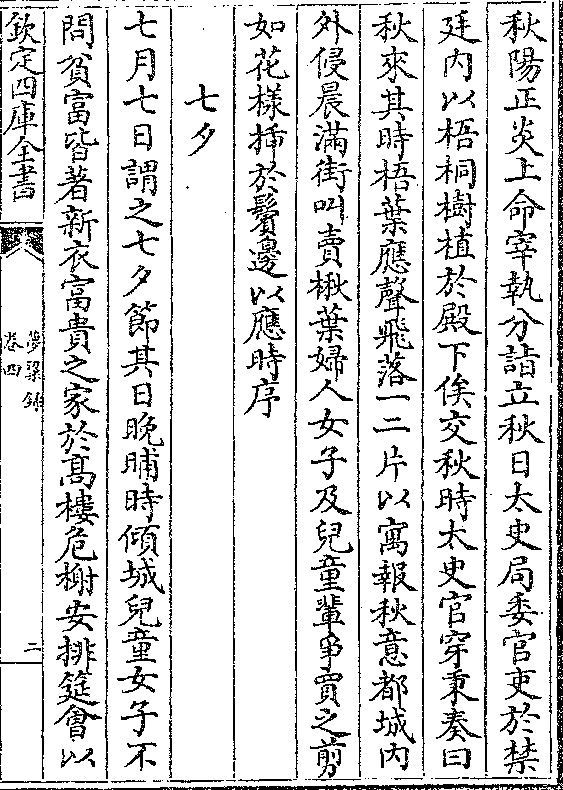 秋陽正炎上命宰執分詣立秋日太史局委官吏於禁
廷内以梧桐樹植於殿下俟交秋時太史官穿秉奏曰
秋來其時梧葉應聲飛落一二片以寓報秋意都城内
外侵晨滿街叫賣楸葉婦人女子及兒童輩爭買之剪
如花樣插於鬢邊以應時序
七夕
七月七日謂之七夕節其日晚晡時傾城兒童女子不
問貧富皆著新衣富貴之家於高樓危榭安排筵會以
欽定四庫全書
夢粱録
卷四
二